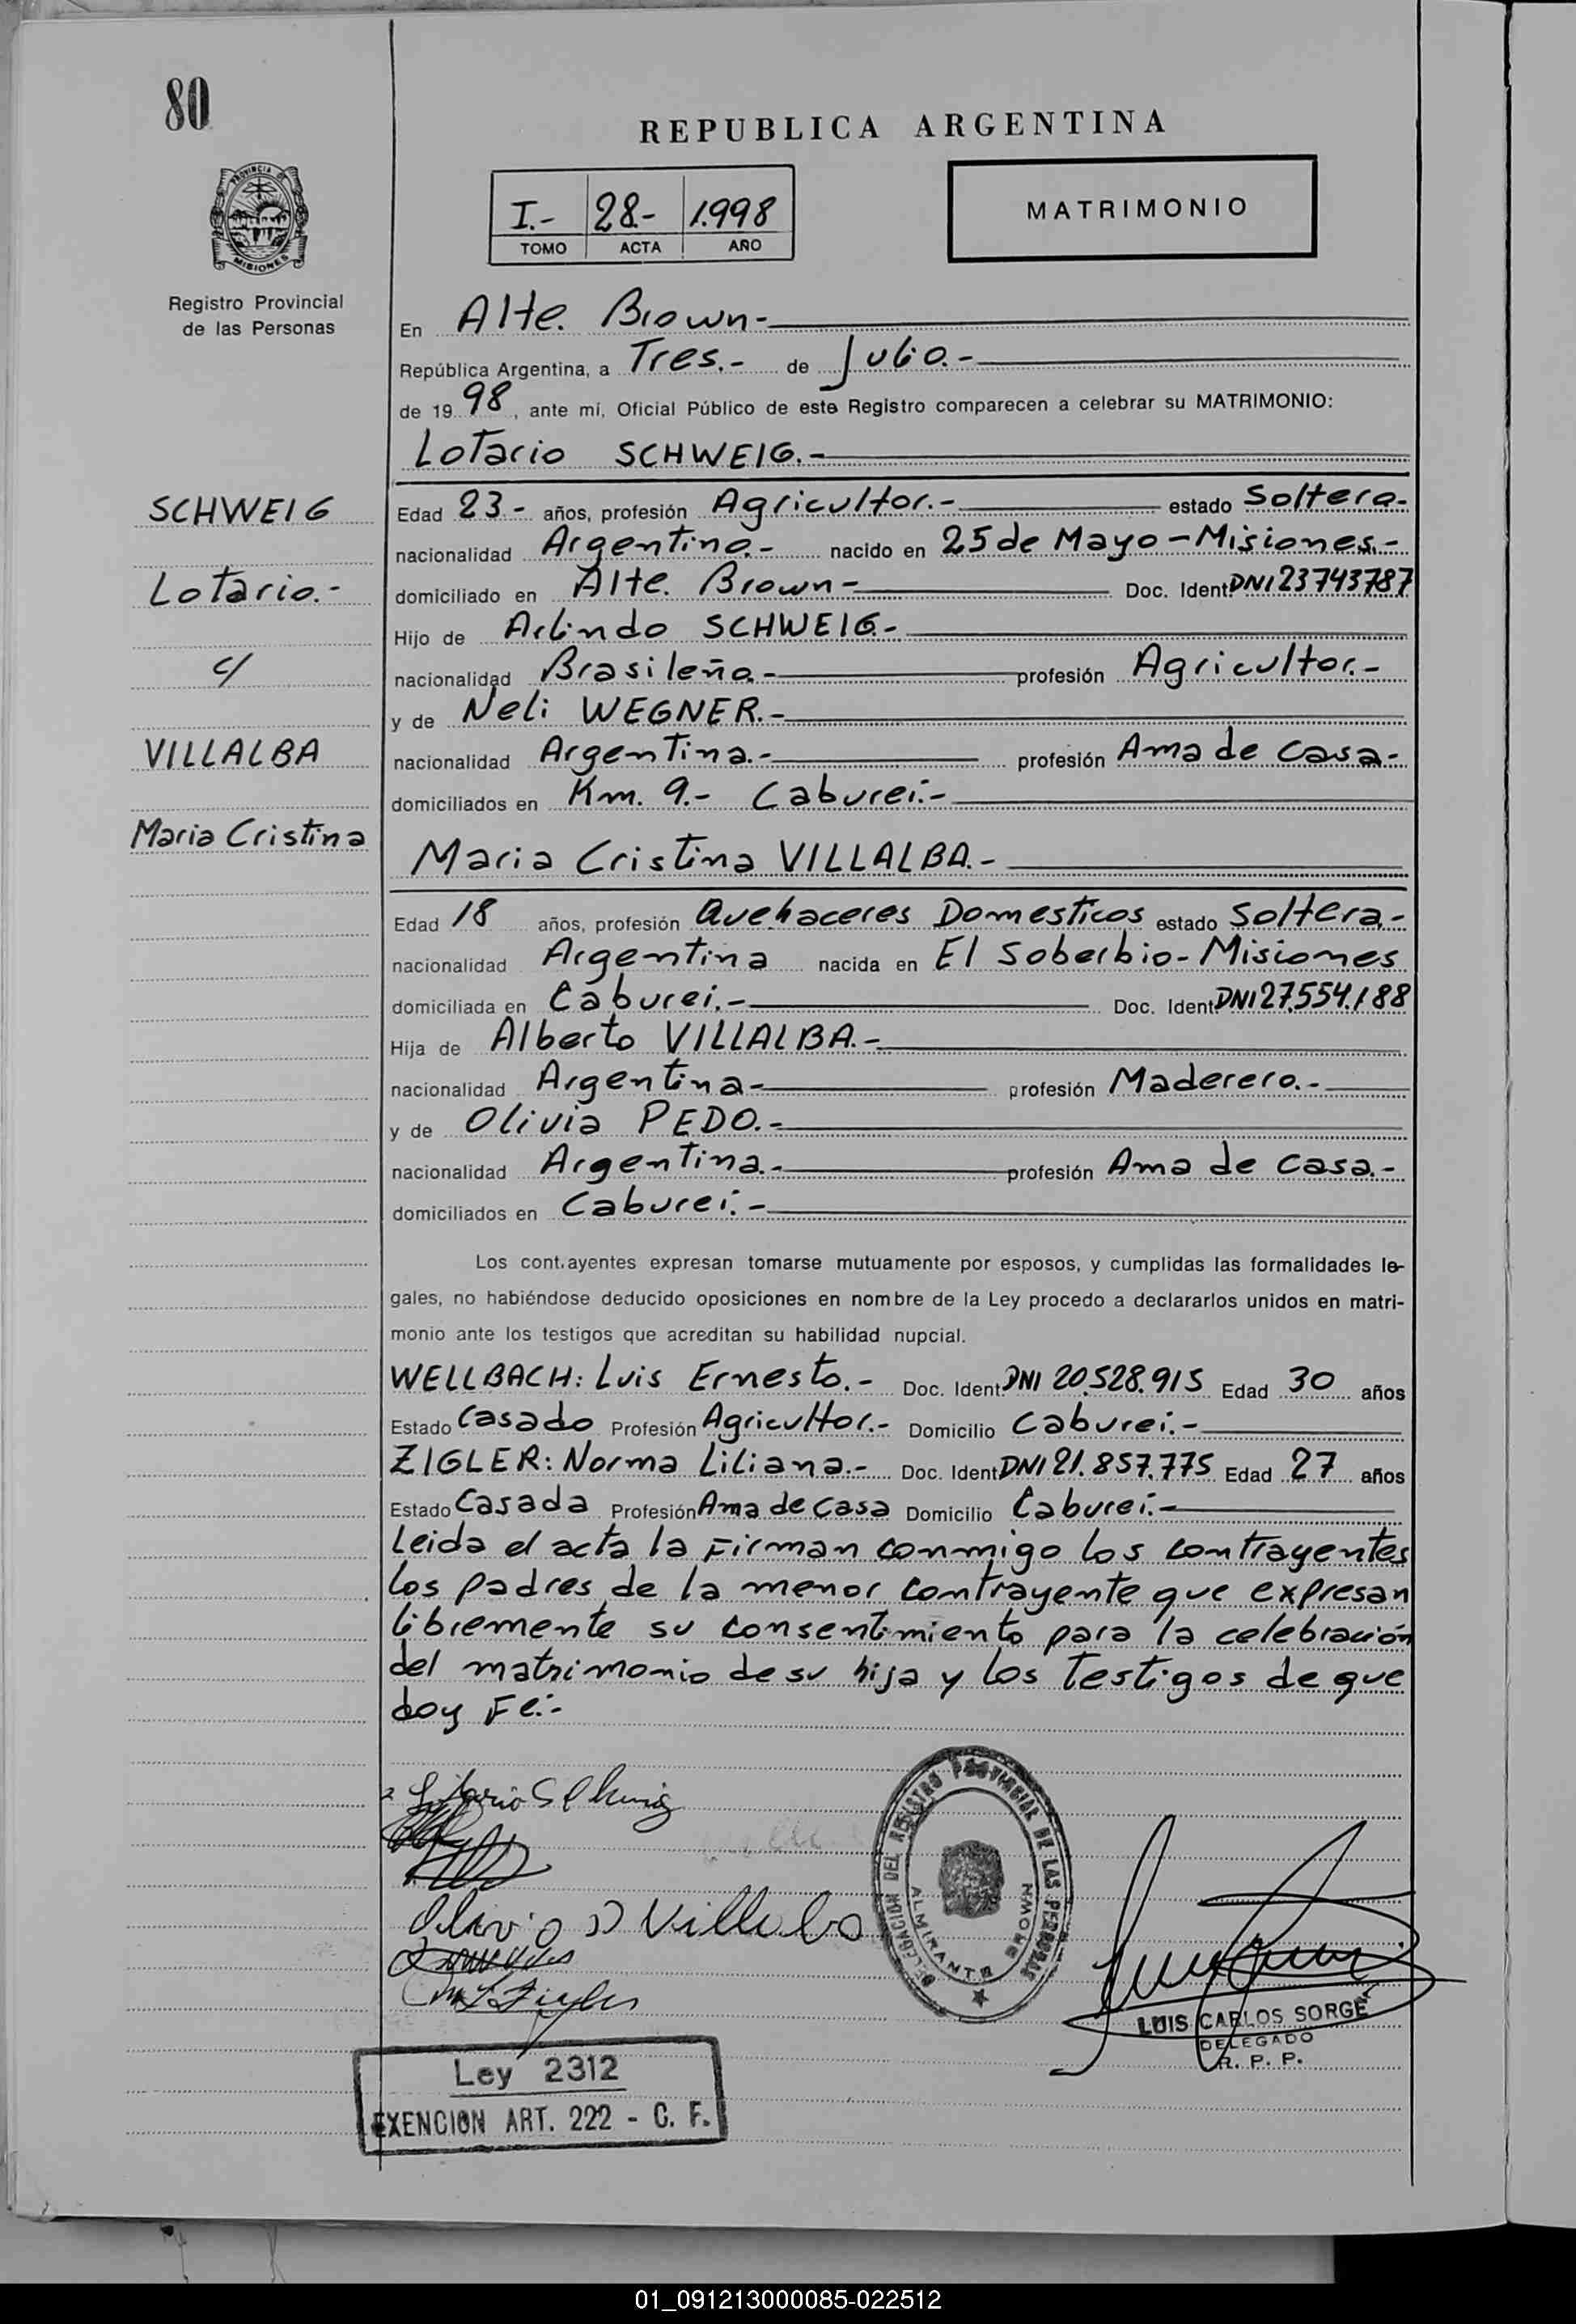 80
REPUBLICA ARGENTINA
PROVINCIA DE
MISIONES
I.- 28.- 1.998
TOMO ACTA AÑO
MATRIMONIO
Registro Provincial
de las Personas
En Alte. Brown.-
República Argentina, a Tres.- de Julio.-
de 19 98, ante mí, Oficial Público de este Registro comparecen a celebrar su MATRIMONIO:
Lotario SCHWEIG.-
SCHWEIG
Lotario.-
c/
VILLALBA
Maria Cristina
Edad 23- años, profesión Agricultor.- estado Soltera-
nacionalidad Argentina.- nacido en 25 de Mayo - Misiones.-
domiciliado en Alte. Brown- Doc. Ident DNI 23743787
Hijo de Arlindo SCHWEIG.-
nacionalidad Brasileña.- profesión Agricultor.-
y de Neli WEGNER.-
nacionalidad Argentina.- profesión Ama de casa-
domiciliados en Km. 9.- Caburei.-
Maria Cristina VILLALBA.-
Edad 18 años, profesión Quehaceres Domesticos estado Soltera.-
nacionalidad Argentina nacida en El Soberbio- Misiones
domiciliada en Caburei.- Doc. Ident DNI 27.554.188
Hija de Alberto VILLALBA.-
nacionalidad Argentina- profesión Maderero.-
y de Olivia PEDO.-
nacionalidad Argentina.- profesión Ama de casa.-
domiciliados en Caburei.-
Los contrayentes expresan tomarse mutuamente por esposos, y cumplidas las formalidades le-
gales, no habiéndose deducido oposiciones en nombre de la Ley procedo a declararlos unidos en matri-
monio ante los testigos que acreditan su habilidad nupcial.
WELLBACH: Luis Ernesto.- Doc. Ident. DNI 20.528.915 Edad 30 años
Estado Casado Profesión Agricultor.- Domicilio Caburei.-
ZIGLER: Norma Liliana.- Doc. Ident. DNI 21.857.775 Edad 27 años
Estado Casada Profesión Ama de casa Domicilio Caburei.-
Leida el acta la Firman conmigo los contrayentes
los padres de la menor contrayente que expresan
libremente su consentimiento para la celebración
del matrimonio de su hija y los testigos de que
doy Fé.-
DELEGACION DEL REGISTRO PROVINCIAL DE LAS PERSONAS
ALMIRANTE BROWN
LUIS CARLOS SORGE
DELEGADO
R. P. P.
Ley 2312
EXENCION ART. 222 - C. F.
01_091213000085-022512